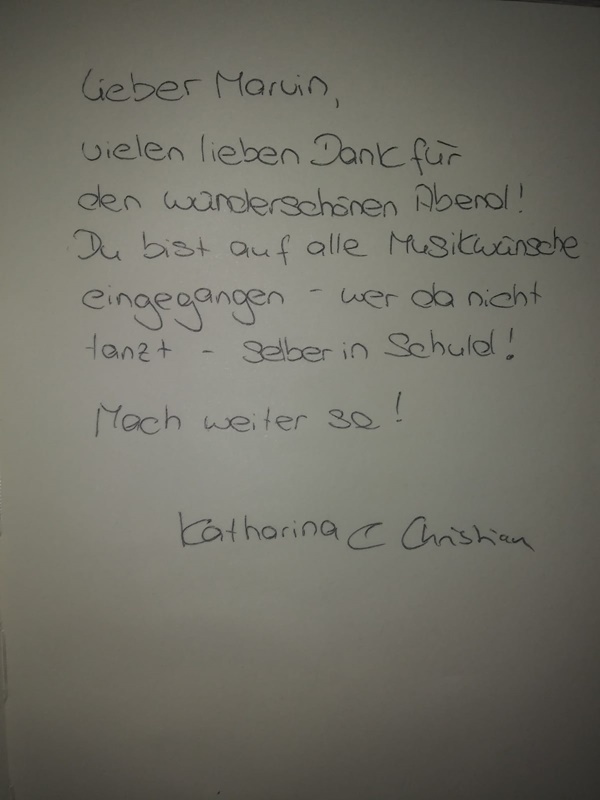 Lieber Marvin,
vielen lieben Dank für
den wunderschönen Abend!
Du bist auf alle Musikwünsche
eingegangen - wer da nicht
tanzt - selber in Schuld!
Mach weiter so!
Katharina & Christian